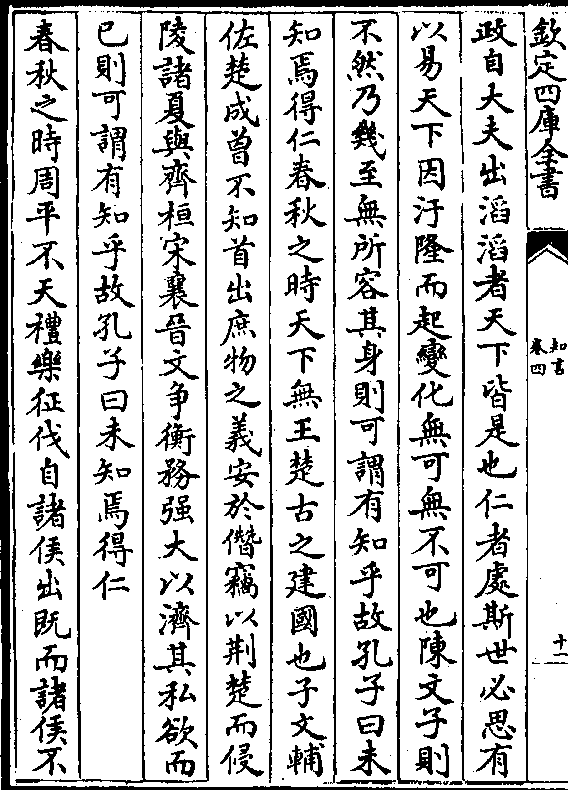 欽定四庫全書
知言
卷四
十一
政自大夫出滔滔者天下皆是也仁者處斯世必思有
以易天下因汙隆而起變化無可無不可也陳文子則
不然乃幾至無所容其身則可謂有知乎故孔子曰未
知焉得仁春秋之時天下無王楚古之建國也子文輔
佐楚成曾不知首出庶物之義安於僭竊以荆楚而侵
陵諸夏與齊桓宋襄晉文争衡務强大以濟其私欲而
已則可謂有知乎故孔子曰未知焉得仁
春秋之時周平不天禮樂征伐自諸侯出既而諸侯不